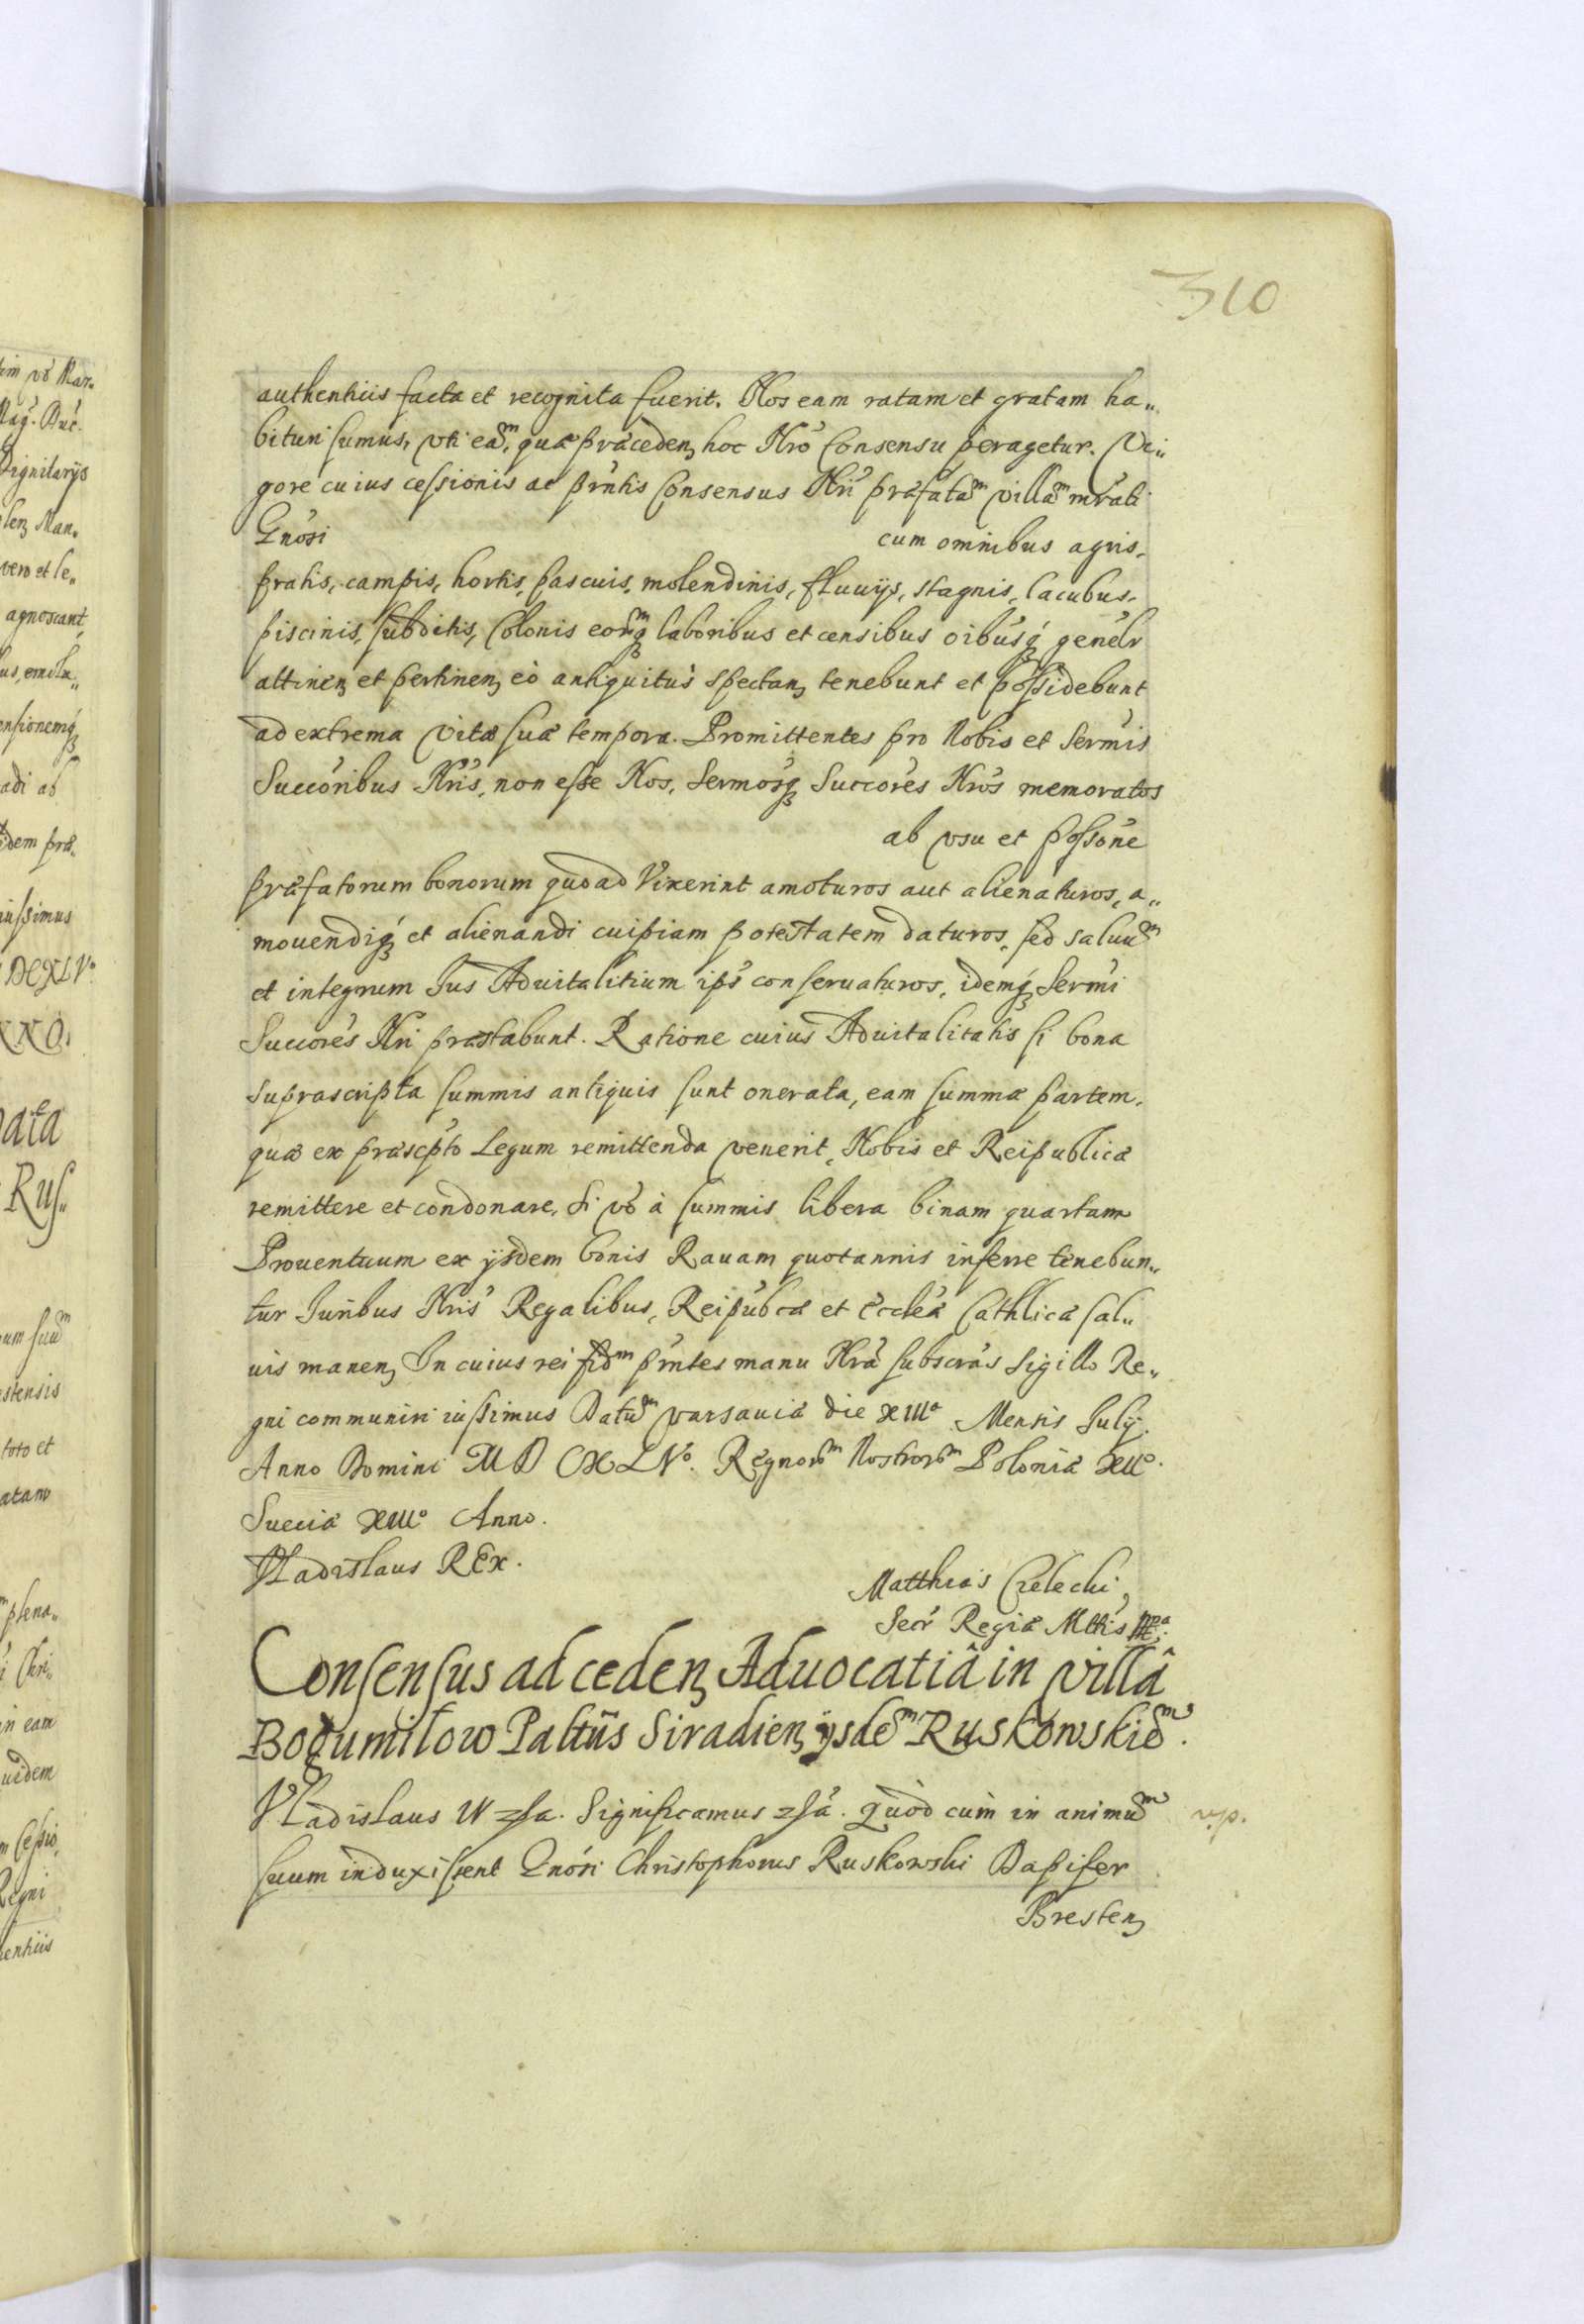 310
authenticis facta et recognita fuerit. Nos eam ratam et gratam ha„
bituri sumus, vti eãm, quæ præceden hoc Nro Consensu peragetur. Vi„
gore cuius cessionis ac prntis Consensus Nri præfatãm villãm mrati
Gnosi cum omnibus agris,
pratis, campis, hortis, pascuis, molendinis, fluuijs, stagnis, lacubus,
piscinis, subditis, Colonis eorũmq laboribus et censibus oibusq genelr
attinen et pertinen eò antiquitus spectan tenebunt et possidebunt
ad extrema vitæ suæ tempora. Promittentes pro Nobis et Sermis
Succoribus Nris, non esse Nos, Sermosq Succores Nros memoratos
ab vsu et possone
præfatorum bonorum quoad Vixerint amoturos aut alienaturos, a„
mouendiq et alienandi cuipiam potestatem daturos, sed saluũm
et integrum Jus Aduitalitium ips conseruaturos, idemq Sermi
Succores Nri præstabunt. Ratione cuius Aduitalitatis si bona
suprascripta summis antiquis sunt onerata, eam summæ partem,
quæ ex præscpto Legum remittenda venerit, Nobis et Reipublicæ
remittere et condonare, Si vo à summis libera binam quartam
Prouentuum ex ijsdem bonis Rauam quotannis inferre tenebun„
tur Juribus Nris Regalibus, Reipubcæ et Eccleæ Cathlicæ sal„
uis manen In cuius rei fidm prntes manu Nra subscras Sigillo Re„
gni communiri iussimus Datũm Varsauiæ die XIIIº Mensis Julij.
Anno Domini MDCXLVº. Regnorm Nostrorm Poloniæ XIIº.
Sueciæ XIIIº Anno.
Vladislaus REx.
Matthias Czelecki,
Secr Regiæ Mttis mpa.
Consensus ad ceden Aduocatiâ in villâ
Bogumilow Palttûs Siradien ijsdem Ruskowskim.
Vladislaus IV zsa. Significamus zsa. Quòd cum in animũm
suum induxissent Gnosi Christophorus Ruskowski Dapifer
Bresten
v.p.